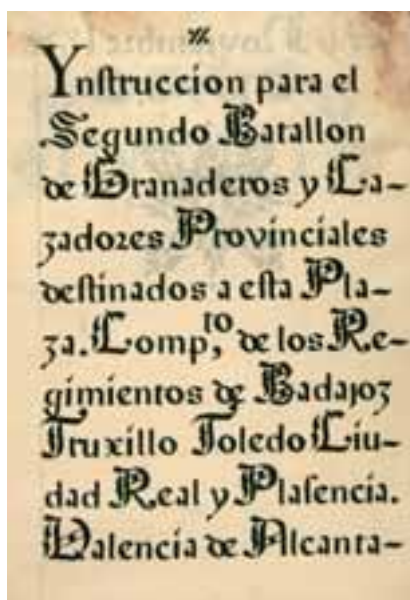 Ynstruccion para el
Segundo Batallon
de Granaderos y Ca-
zadores Provinciales
destinados a esta Pla-
za. Comp,to de los Re-
gimientos de Badajoz
Truxillo Toledo Ciu-
dad Real y Plasencia.
Valencia de Alcanta-